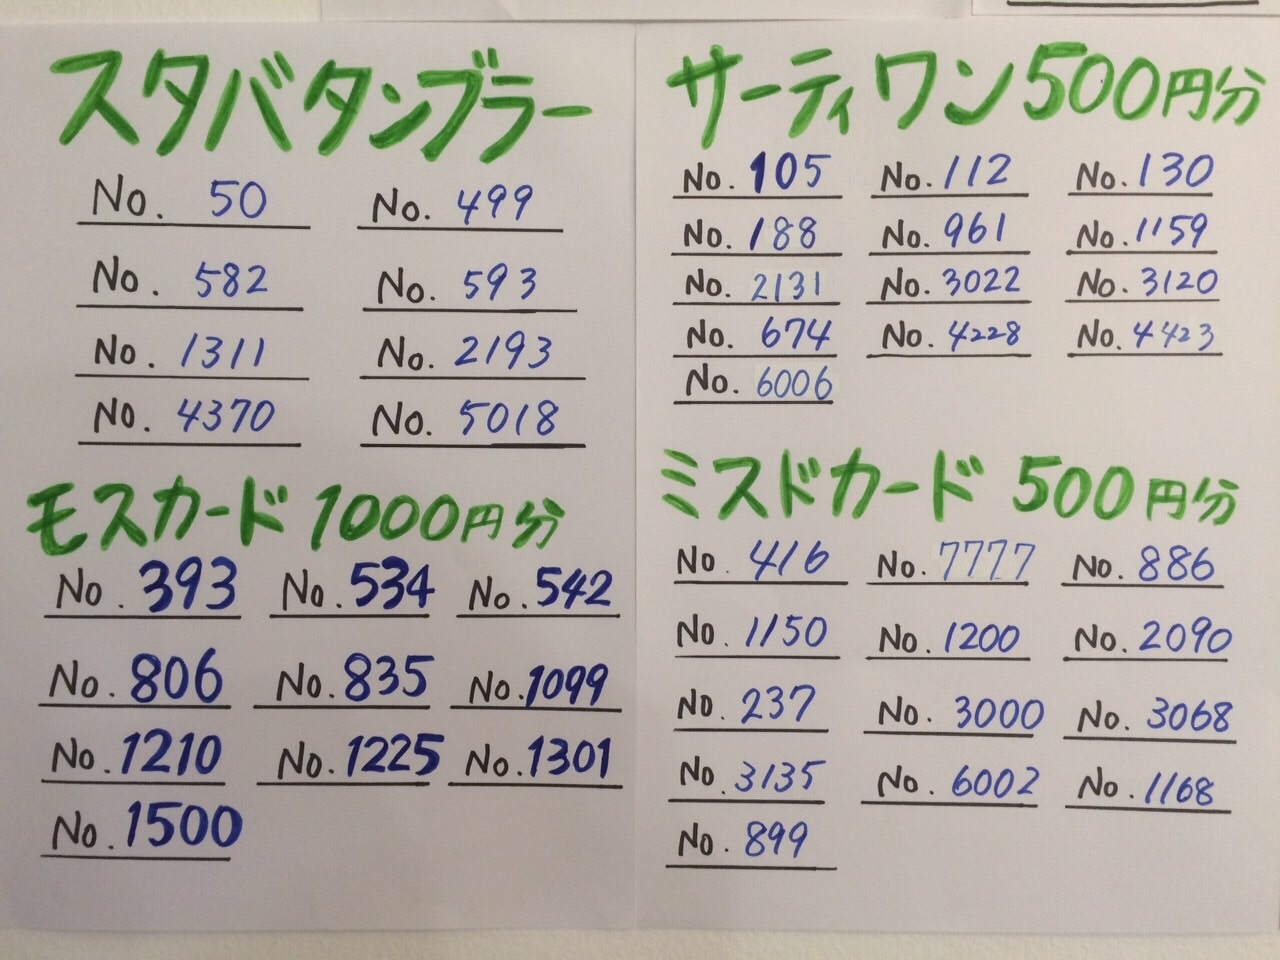 スタバタンブラー
No. 50 No. 499
No. 582 No. 593
No. 1311 No. 2193
No. 4370 No. 5018
モスカード 1000円分
No. 393 No. 534 No. 542
No. 806 No. 835 No. 1099
No. 1210 No. 1225 No. 1301
No. 1500
サーティワン 500円分
No. 105 No. 112 No. 130
No. 188 No. 961 No. 1159
No. 2131 No. 3022 No. 3120
No. 674 No. 4228 No. 4423
No. 6006
ミスドカード 500円分
No. 416 No. 7777 No. 886
No. 1150 No. 1200 No. 2090
No. 237 No. 3000 No. 3068
No. 3135 No. 6002 No. 1168
No. 899